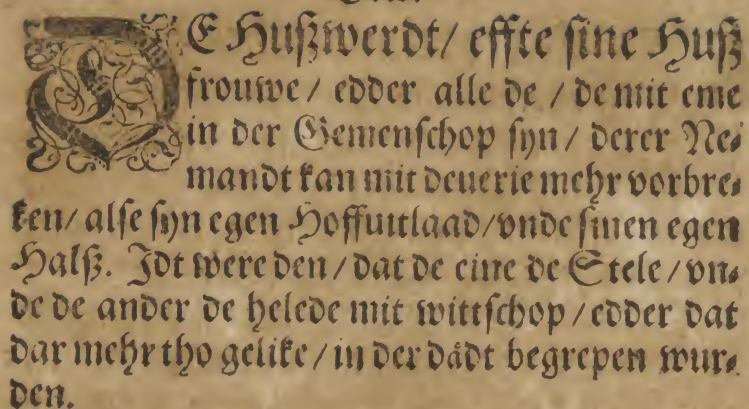 DE Hußwerdt / effte sine Huß
frouwe / edder alle de / de mit eme
in der Gemenschop syn / derer Ne⸗
mandt kan mit deuerie mehr vorbre⸗
ken / alse syn egen Hoffuitlaad / vnde sinen egen
Halß. Jdt were den / dat de eine de Stele / vn⸗
de de ander de helede mit wittschop / edder dat
dar mehr tho gelike / in der dådt begrepen wur⸗
den.